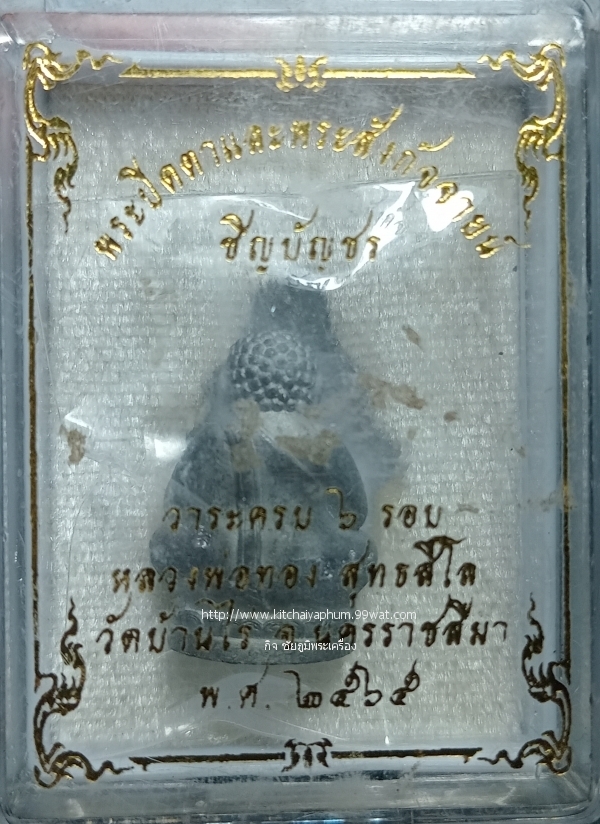 พระปิดตาและพระสังกัจจายน์
ชิญบัญชร
วาระครบ ๖ รอบ
หลวงพ่อทอง สุทธสีโล
http://www.kitchaiyaphum.99wat.com
วัดบ้านไร่ จ.นครราชสีมา
กิจ ชัยภูมิพระเครื่อง
พ.ศ. ๒๕๖๕